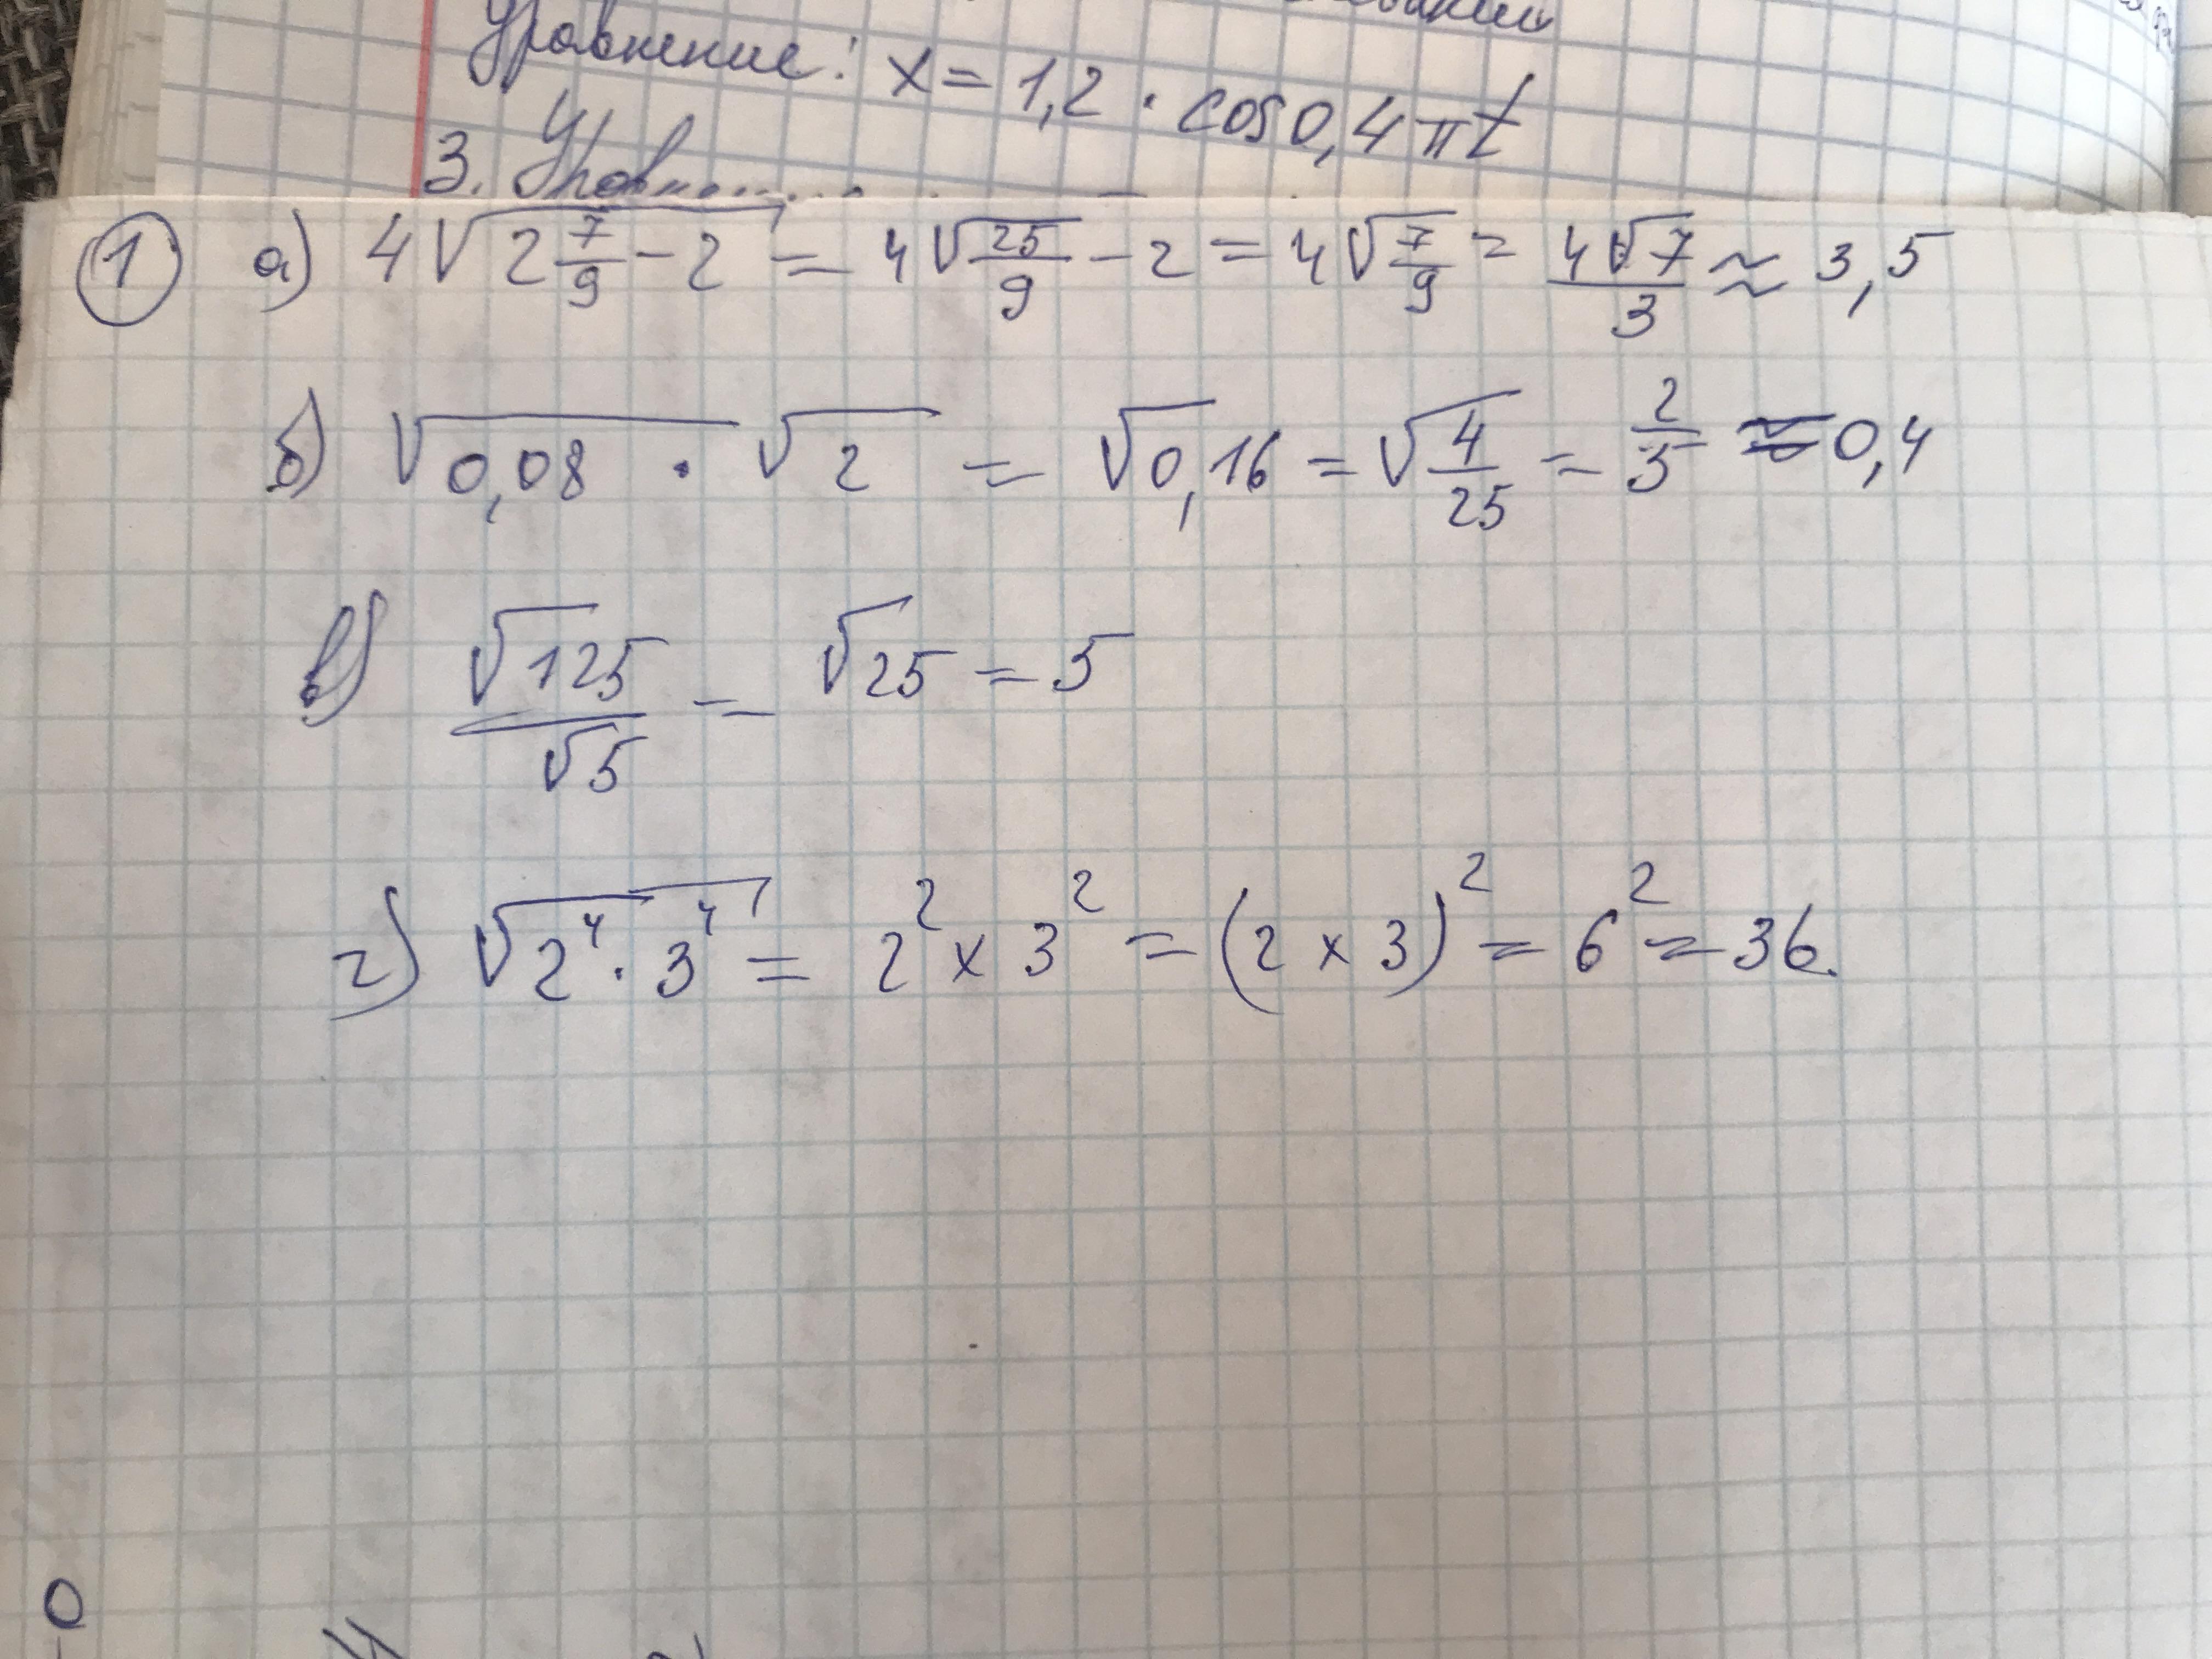 Уравнение: x = 1,2 · cos 0,4 π t
3.
① а) 4√(2 7/9 - 2) = 4√(25/9) - 2 = 4√(7/9) = 4√7/3 ≈ 3,5
б) √0,08 · √2 = √0,16 = √(4/25) = 2/5 = 0,4
в) √125/√5 = √25 = 5
г) √(2⁴ · 3⁴) = 2² x 3² = (2 x 3)² = 6² = 36.